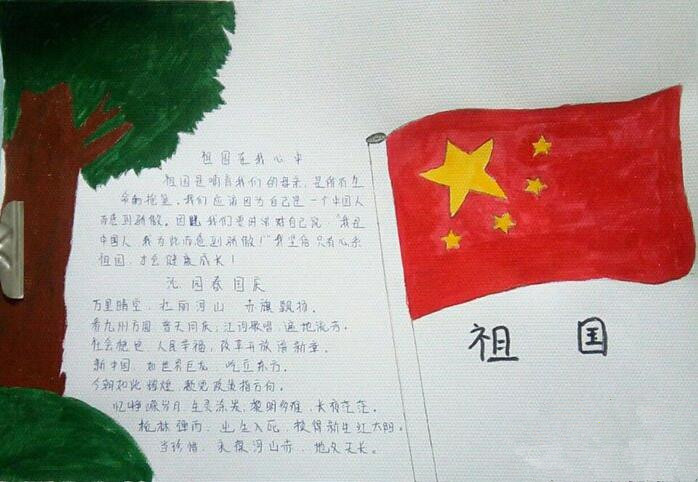 祖国在我心中
祖国是哺育我们的母亲，是所有生
命的摇篮，我们应该因为自己是一个中国人
而感到骄傲。因此我们要时常对自己说“我是
中国人 我为此而感到骄傲！”我坚信只有心系
祖国，才会健康成长！
沁园春国庆
万里晴空，壮丽河山，赤旗飘扬。
看九州方圆，普天同庆；江河歌唱，遍地流芳。
社会 ，人民幸福，改革开放谱新章。
新中国，如世界巨龙，屹立东方。
今朝如此辉煌，靠 政策指方向。
忆峥嵘岁月，生灵涂炭；黎明多难，长夜茫茫。
枪林弹雨，出生入死，换得新生红太阳。
当珍惜，永保河山赤，地久天长。
祖 国